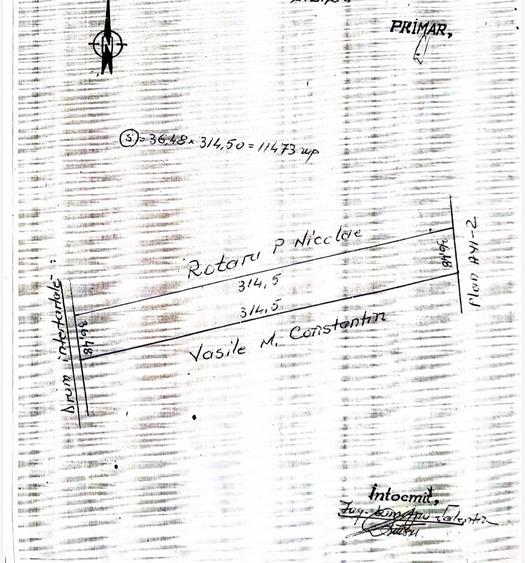 N
PRIMAR,
S = 36.48 x 314,50 = 11473 mp
Rotaru P Nicolae
314,5
36.48
Plan A41-2
314,5
Drum
36.48
Vasile M. Constantin
Intocmit,
Ing.